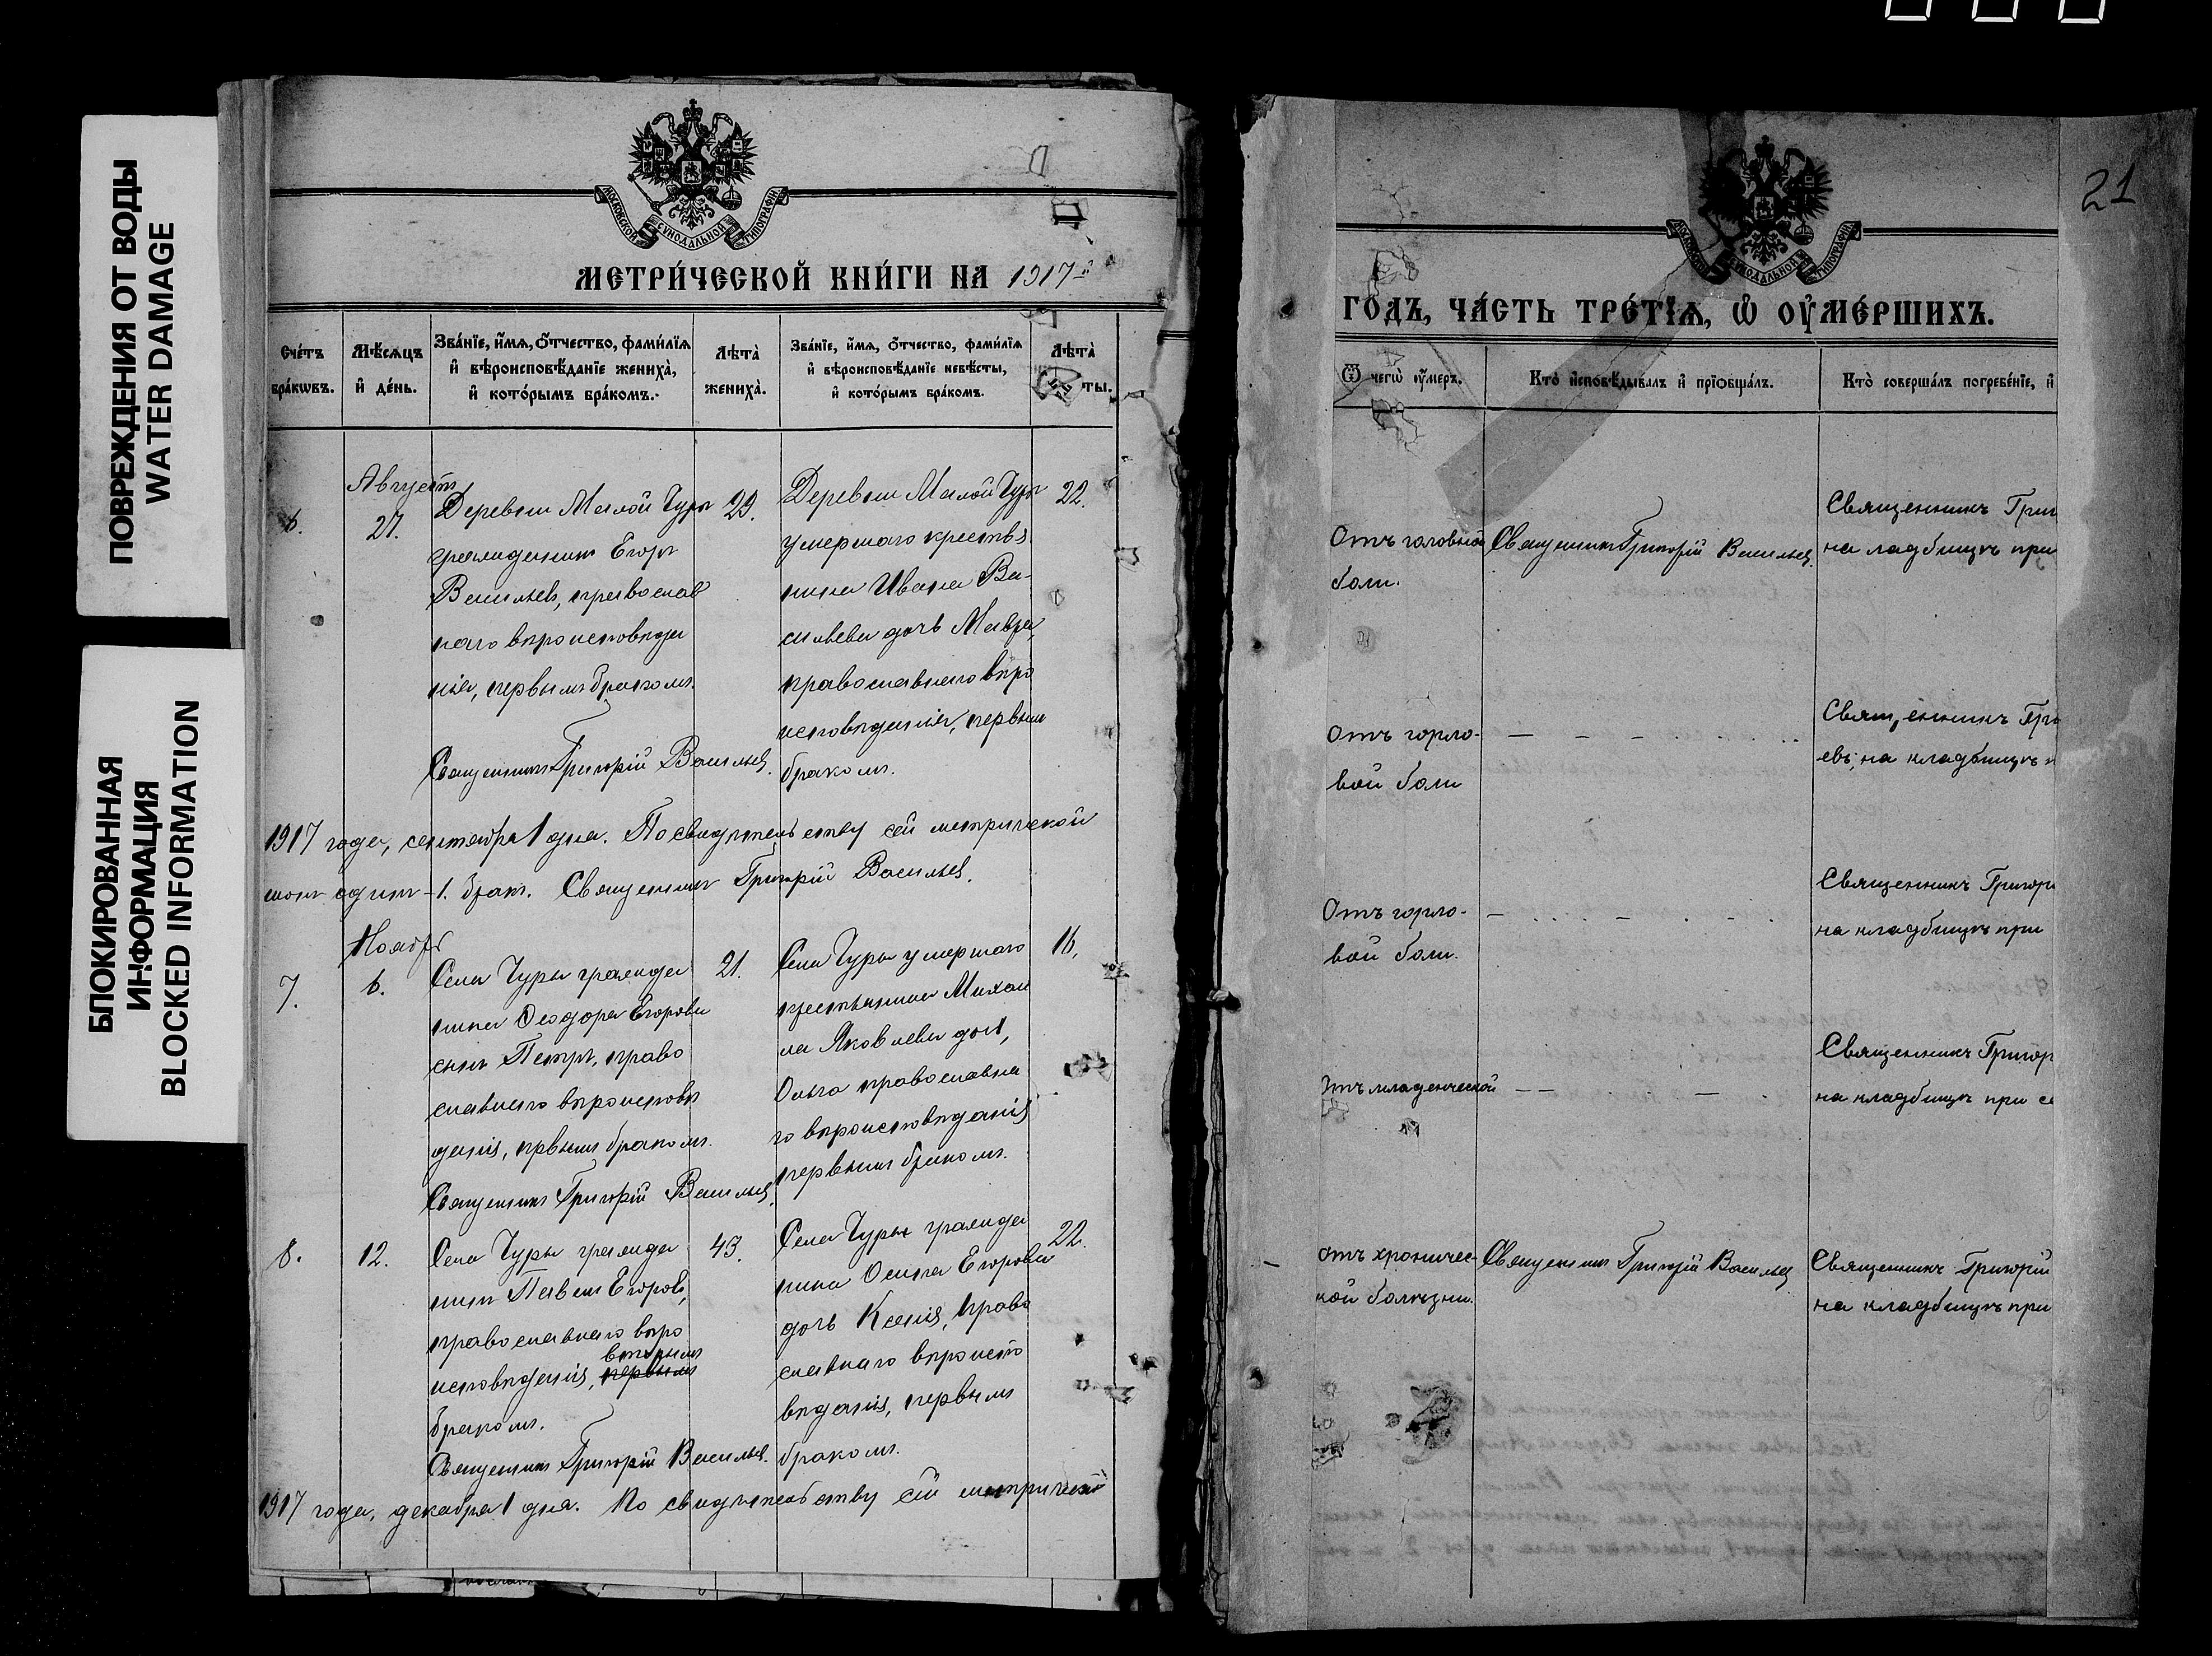 ПОВРЕЖДЕНИЯ ОТ ВОДЫ
WATER DAMAGE
БЛОКИРОВАННАЯ
ИНФОРМАЦИЯ
BLOCKED INFORMATION
МОСКОВСКОЙ СѴНОДАЛЬНОЙ ТИПОГРАФІИ
МЕТРИ́ЧЕСКОЙ КНИ́ГИ НА 1917-й
Сче́тъ бра́кѡвъ.
Мѣ́сѧцъ и҆ де́нь.
Зва́нїе, и҆́мѧ, ѻ҆́тчество, фами́лїѧ
и҆ вѣроисповѣ́данїе жениха̀,
и҆ кото́рымъ бра́комъ.
Лѣта̀ жениха̀.
Зва́нїе, и҆́мѧ, ѻ҆́тчество, фами́лїѧ
и҆ вѣроисповѣ́данїе невѣ́сты,
и҆ кото́рымъ бра́комъ.
Лѣта̀
ты.
Августъ
6.
27.
Деревни Малой Чуры
гражданинъ Егоръ
Васильевъ, православ
наго вѣроисповѣда
нія, первымъ бракомъ.
29.
Деревни Малой Чуры
умершаго крестья
нина Ивана Ва-
сильева дочь Мавра,
православнаго вѣро
исповѣданія, первымъ
бракомъ.
22.
Священникъ Григорій Васильевъ.
1917 года, сентября 1 дня. По свидѣтельству сей метрической
одинъ - 1. бракъ. Священникъ Григорій Васильевъ.
Ноябрь
7.
6.
Села Чуры гражда
нина Ѳеодора Егорова
сынъ Петръ, право
славнаго вѣроисповѣ
данія, првымъ бракомъ.
21.
Села Чуры умершаго
крестьянина Михаи
ла Яковлева дочь,
Ольга православна
го вѣроисповѣданія
первымъ бракомъ.
16,
Священникъ Григорій Васильевъ.
8.
12.
Села Чуры гражда
нинъ Павелъ Егоровъ,
православнаго вѣро
вторымъ
исповѣданія, первымъ
бракомъ.
43.
Села Чуры гражда
нина Осипа Егорова
дочь Ксенія, право
славнаго вѣроиспо
вѣданія, первымъ
бракомъ.
22.
Священникъ Григорій Васильевъ.
1917 года, декабря 1 дня. По свидѣтельству сей метрической
21
МОСКОВСКОЙ СѴНОДАЛЬНОЙ ТИПОГРАФІИ
ГО́ДЪ, ЧА́СТЬ ТРЕ́ТЇѦ, Ѡ҆ ОУ҆МЕ́РШИХЪ.
Ѿ чегѡ̀ оу҆́меръ.
Кто̀ и҆сповѣ́дывалъ и҆ прїѻбща́лъ.
Кто̀ соверша́лъ погребе́нїе, и҆
Отъ головной
боли.
Священникъ Григорій Васильевъ.
Священникъ Григ
на ладбищѣ при
Отъ горло-
вой боли
Священникъ Гри
евъ, на кладбищѣ
Отъ горло-
вой боли.
Священникъ Григорі
на кладбищѣ при
Отъ младенческой
Священникъ Григор
на кладбищѣ при се
Отъ хроничес-
кой болѣзни.
Священникъ Григорій Васильевъ
Священникъ Григорій
на кладбищѣ при